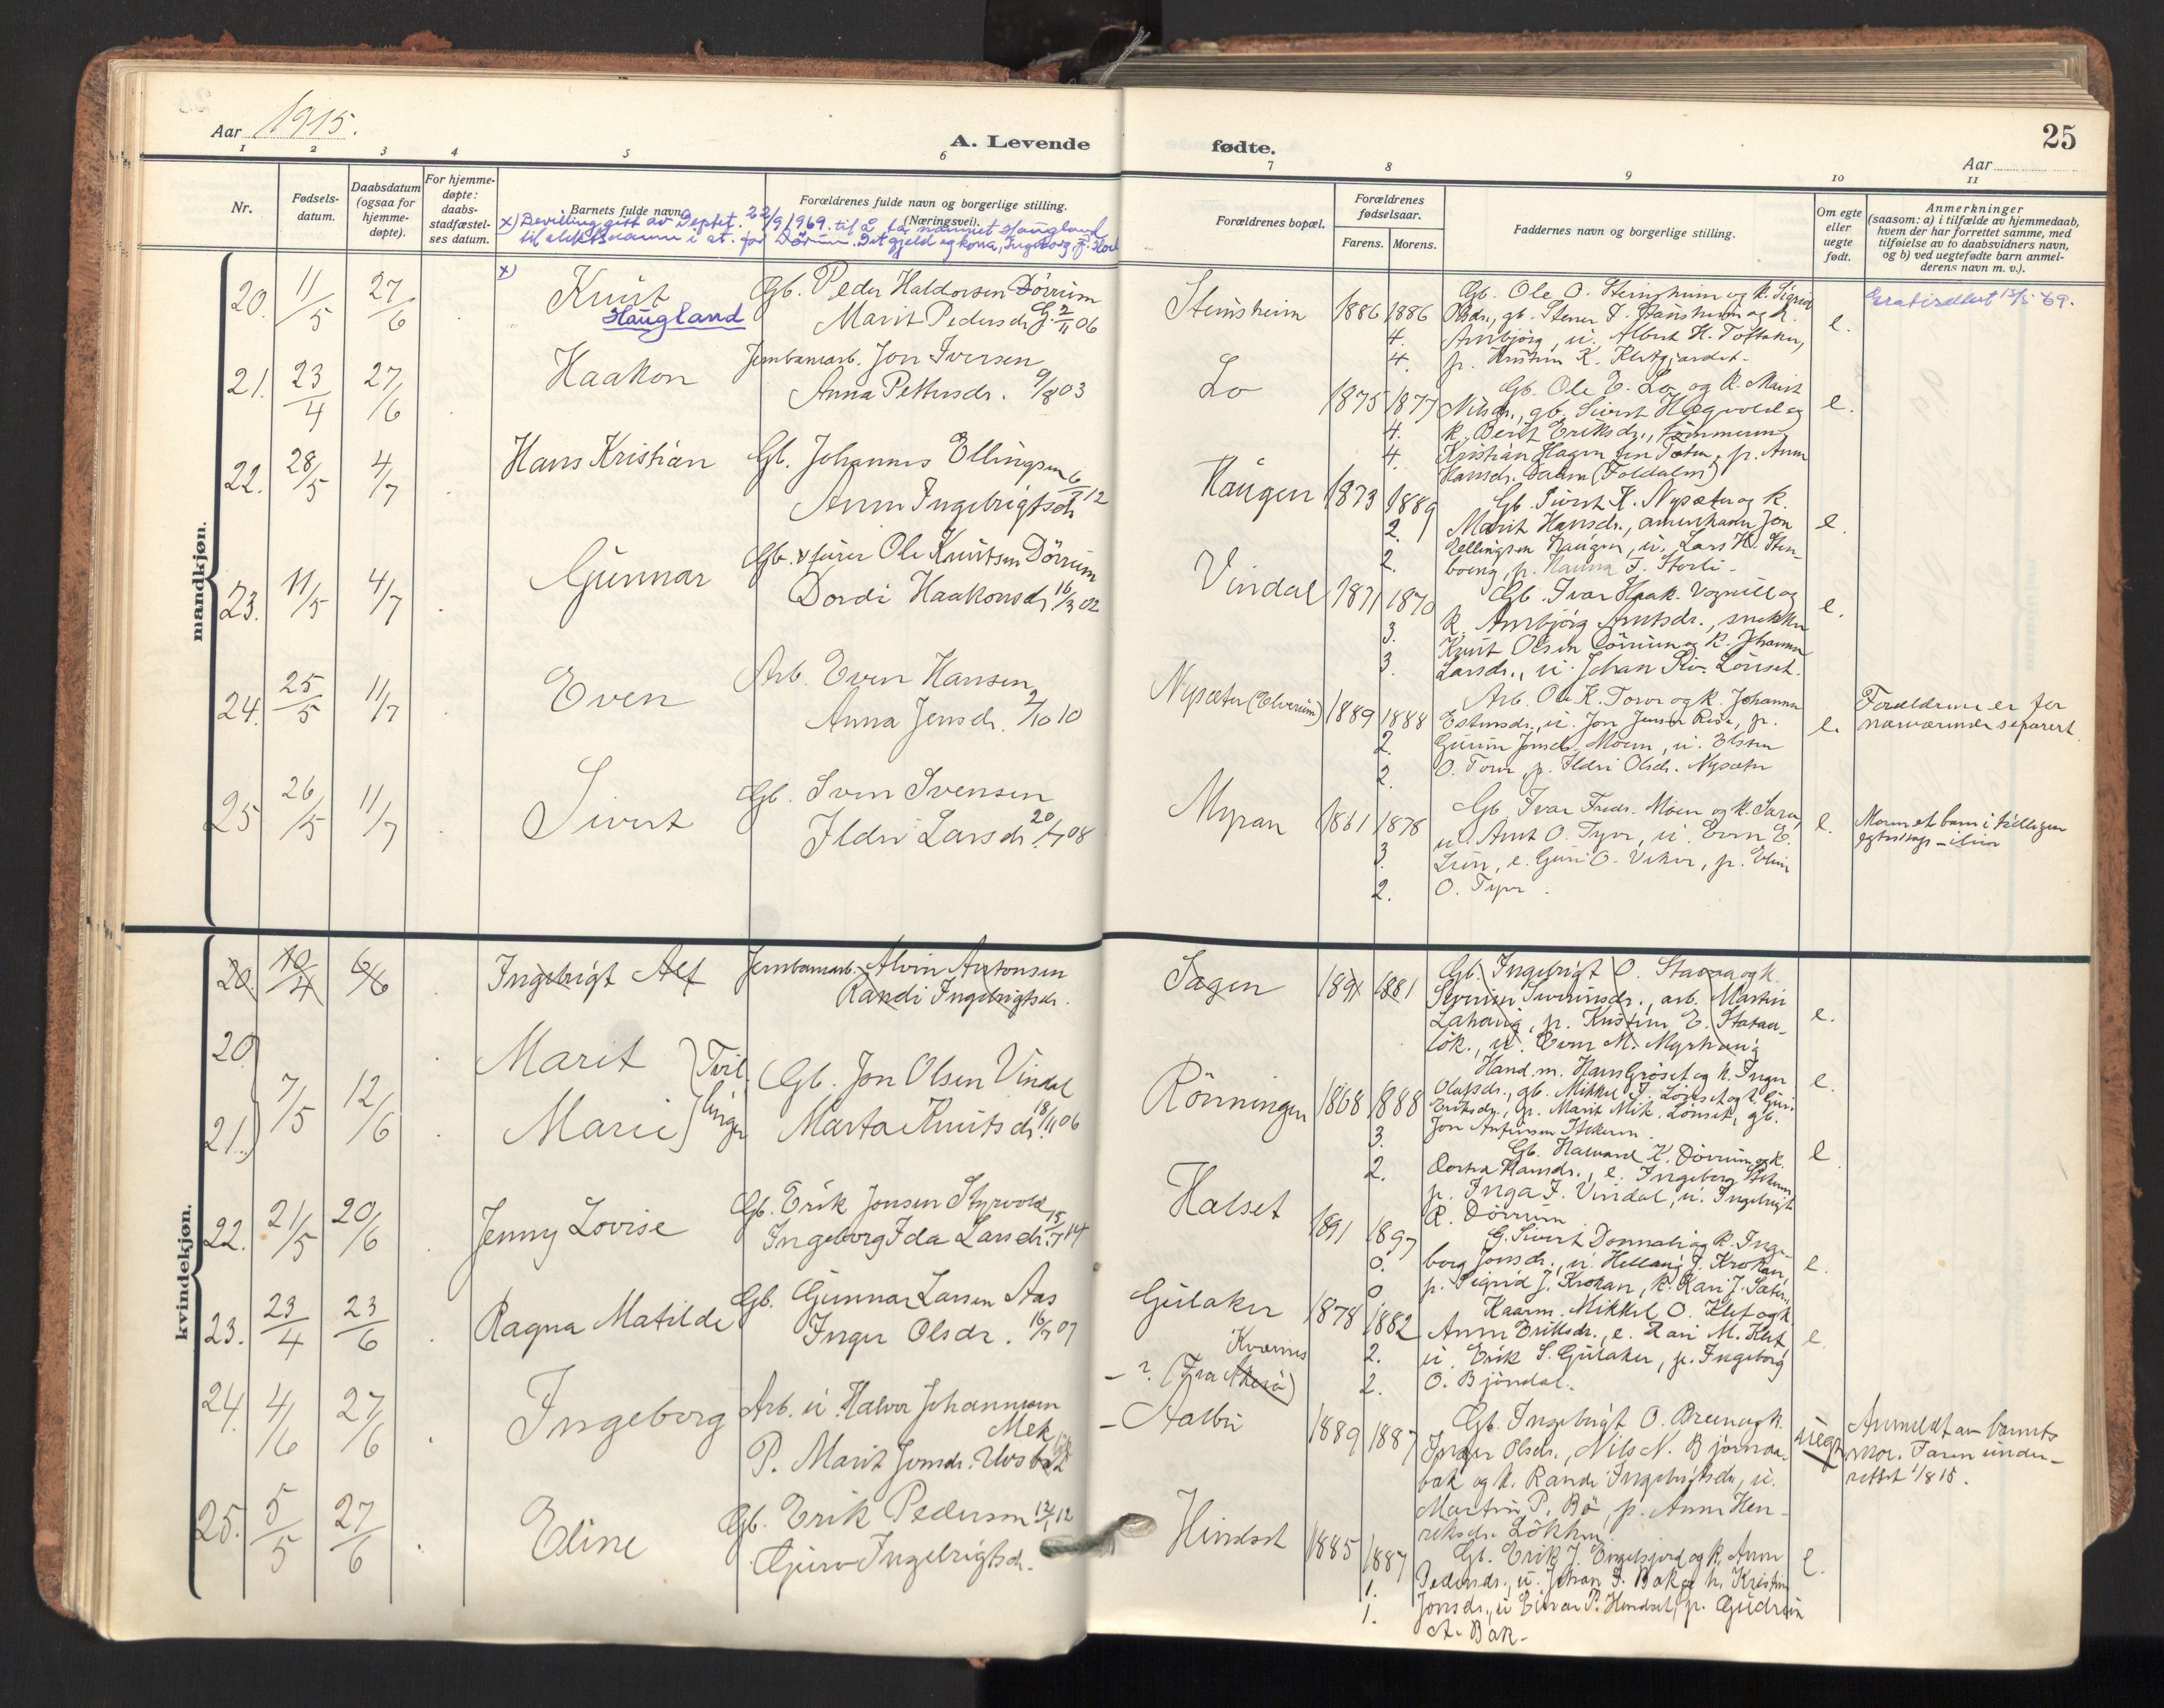 Aar 1915.
A. Levende
fødte.
25
Aar
1 2 3 4 5 6 7 8 9 10 11
Nr.
Fødsels-
datum.
Daabsdatum
(ogsaa for
hjemme-
døpte).
For hjemme-
døpte:
daabs-
stadfæstel-
ses datum.
Barnets fulde navn.
Forældrenes fulde navn og borgerlige stilling.
(Næringsvei).
Forældrenes bopæl.
Forældrenes
fødselsaar.
Farens. Morens.
Faddernes navn og borgerlige stilling.
Om egte
eller
uegte
født.
Anmerkninger
(saasom: a) i tilfælde av hjemmedaab,
hvem der har forrettet samme, med
tilføielse av to daabsvidners navn,
og b) ved uegtefødte barn anmel-
derens navn m. v.).
x) Bevilling gitt av Deptet. 22/9 1969 til å ta navnet Haugland
til slektsnavn i st. for Dörum.
mandkjøn.
20. 11/5 27/6 x) Knut Gb. Peder Haldorsen Dörrum
Haugland Marit Pedersdr. 2/11 06
Stensheim 1886 1886 Gb. Ole O. Stensheim og k. Sigrid
4. 4. e.
21. 23/4 27/6 Haakon Jernbanearb. Jon Iversen
Anna Pettersdr. 9/8 03
Lo 1875 1877 Gb. Ole E. Lo og k. Marit
Nilsdr., gb. Sivert Hægvold og e.
4. k. Berit Eriksdr., tömmerm.
4. Kristian Hagen fra Toten, p. Anne
Hansdr. Dalen (Foldalen)
22. 28/5 4/7 Hans Kristian Gb. Johannes Ellingsen
Anne Ingebrigtsdr. 6/1 12
Haugen 1873 1889 Gb. Sivert H. Nysæter og k.
2. Marit Hansdr., amerikaner Jon e.
2. Ellingsen Haugen, u. Lars H. Sten-
boeng, p. Hanna J. Storli
23. 11/5 4/7 Gunnar Gb. Ole Knutsen Dörrum
Dordi Haakonsdr. 16/3 02
Vindal 1871 1870 Gb. Ivar Haak. Vognill og
3. k. Annbjörg Arntsdr., snekker e.
3. Knut Olsen Dörrum og k. Johanna
Larsdr., u. Johan Lönset.
24. 25/5 11/7 Even Arb. Even Hansen
Anna Jensdr. 2/10 10
Nysæter (Elverum) 1889 1888 Arb. Ole K. Torve og k. Johanna
2. Estensdr., u. Jon Jensen Rise, p. e.
2. Gurun Jonsdr. Moen, u. Esten
O. Torve, p. Ildri Olsdr. Nysæter
Foreldrene er for
nærværende separert.
25 26/5 11/7 Sivert Gb. Sven Svensen
Ildri Larsdr. 20/7 08
Myran 1861 1878 Gb Ivar Fredr. Moen og k. Sara, e.
3. u. Arnt O. Tyve, u. Even E.
2. Lien, e. Guri O. Viken, p. Elin
O. Tyve.
Moren et barn i tidligere
egteskap
kvindekjøn.
20. 10/4 6/6 Ingebrigt Alf Jernbanearb. Alvin Antonsen
Randi Ingebrigtsdr.
Sagen 1891 1881 Gb. Ingebrigt O. Stavaa og k.
Severine Severinsdr., arb. Martin
Lahaug, p. Kristine E. Stavaa-
lök., u. Even M. Myrhaug e.
20. Marit } Tvil- Gb. Jon Olsen Vindal
7/5 12/6
21. Marie } linger Marta Knutsdr. 18/11 06
Rönningen 1868 1888 Hand.m. Hans Gröset og k. Inger e.
Olafsdr., gb. Mikkel J. Lönset og k. Guri
Eriksdr., p. Marit Mik. Lönset, gb.
3. Jon Anfinsen Stekerm.
2. Gb. Halvard K. Dörrum og k. e
Dortea Hansdr., e. Ingeborg
p. Inga J. Vindal, u. Ingebrigt
R. Dörrum
22. 21/5 20/6 Jenny Lovise Gb. Erik Jonsen Styrvold
Ingeborg Ida Larsdr. 15/7 14
Halset 1891 1897 G. Sivert Donnali og k. Inge-
0. borg Jonsdr., u. Hellaug J. Krokan, e.
0 p. Sigrid J. Krokan, k. Kari J. Sæter
23. 23/4 23/6 Ragna Matilde Gb. Gunnar Larsen Aas
Inger Olsdr. 16/7 07
Gulaker 1878 1882 Kaarm. Mikkel O. Klet og k
2. Anne Eriksdr., e. Kari M. Klet, e
2. u. Erik S. Gulaker, p. Ingeborg
O. Bjöndal.
24. 4/6 27/6 Ingeborg Arb. u. Halvor Johannesen
Mek
P. Marit Jonsdr. Uvsbak
Kvernes
- ? (Fra Akerö)
- Aalbu 1889 1887 Gb. Ingebrigt O. Breen og k. uegt
Inger Olsdr., Nils N. Bjørnaa-
bak og k. Randi Ingebrigtsdr., u.
Martin P. Bö, p. Anne Hen-
riksdr. Lökken.
Anmeldt av barnets
mor. Faren under-
rettet 1/8 15.
25. 5/5 27/6 Eline Gb. Erik Pedersen 12/1 12
Guro Ingebrigtsdr.
Hindset 1885 1887 Gb. Erik J. Engelsjord og k. Anne e.
1. Pedersdr., u. Johan J. Bak og k. Kristin
1. Jonsdr., u Einar P. Hindset, p. Gudrun
A. Bak.